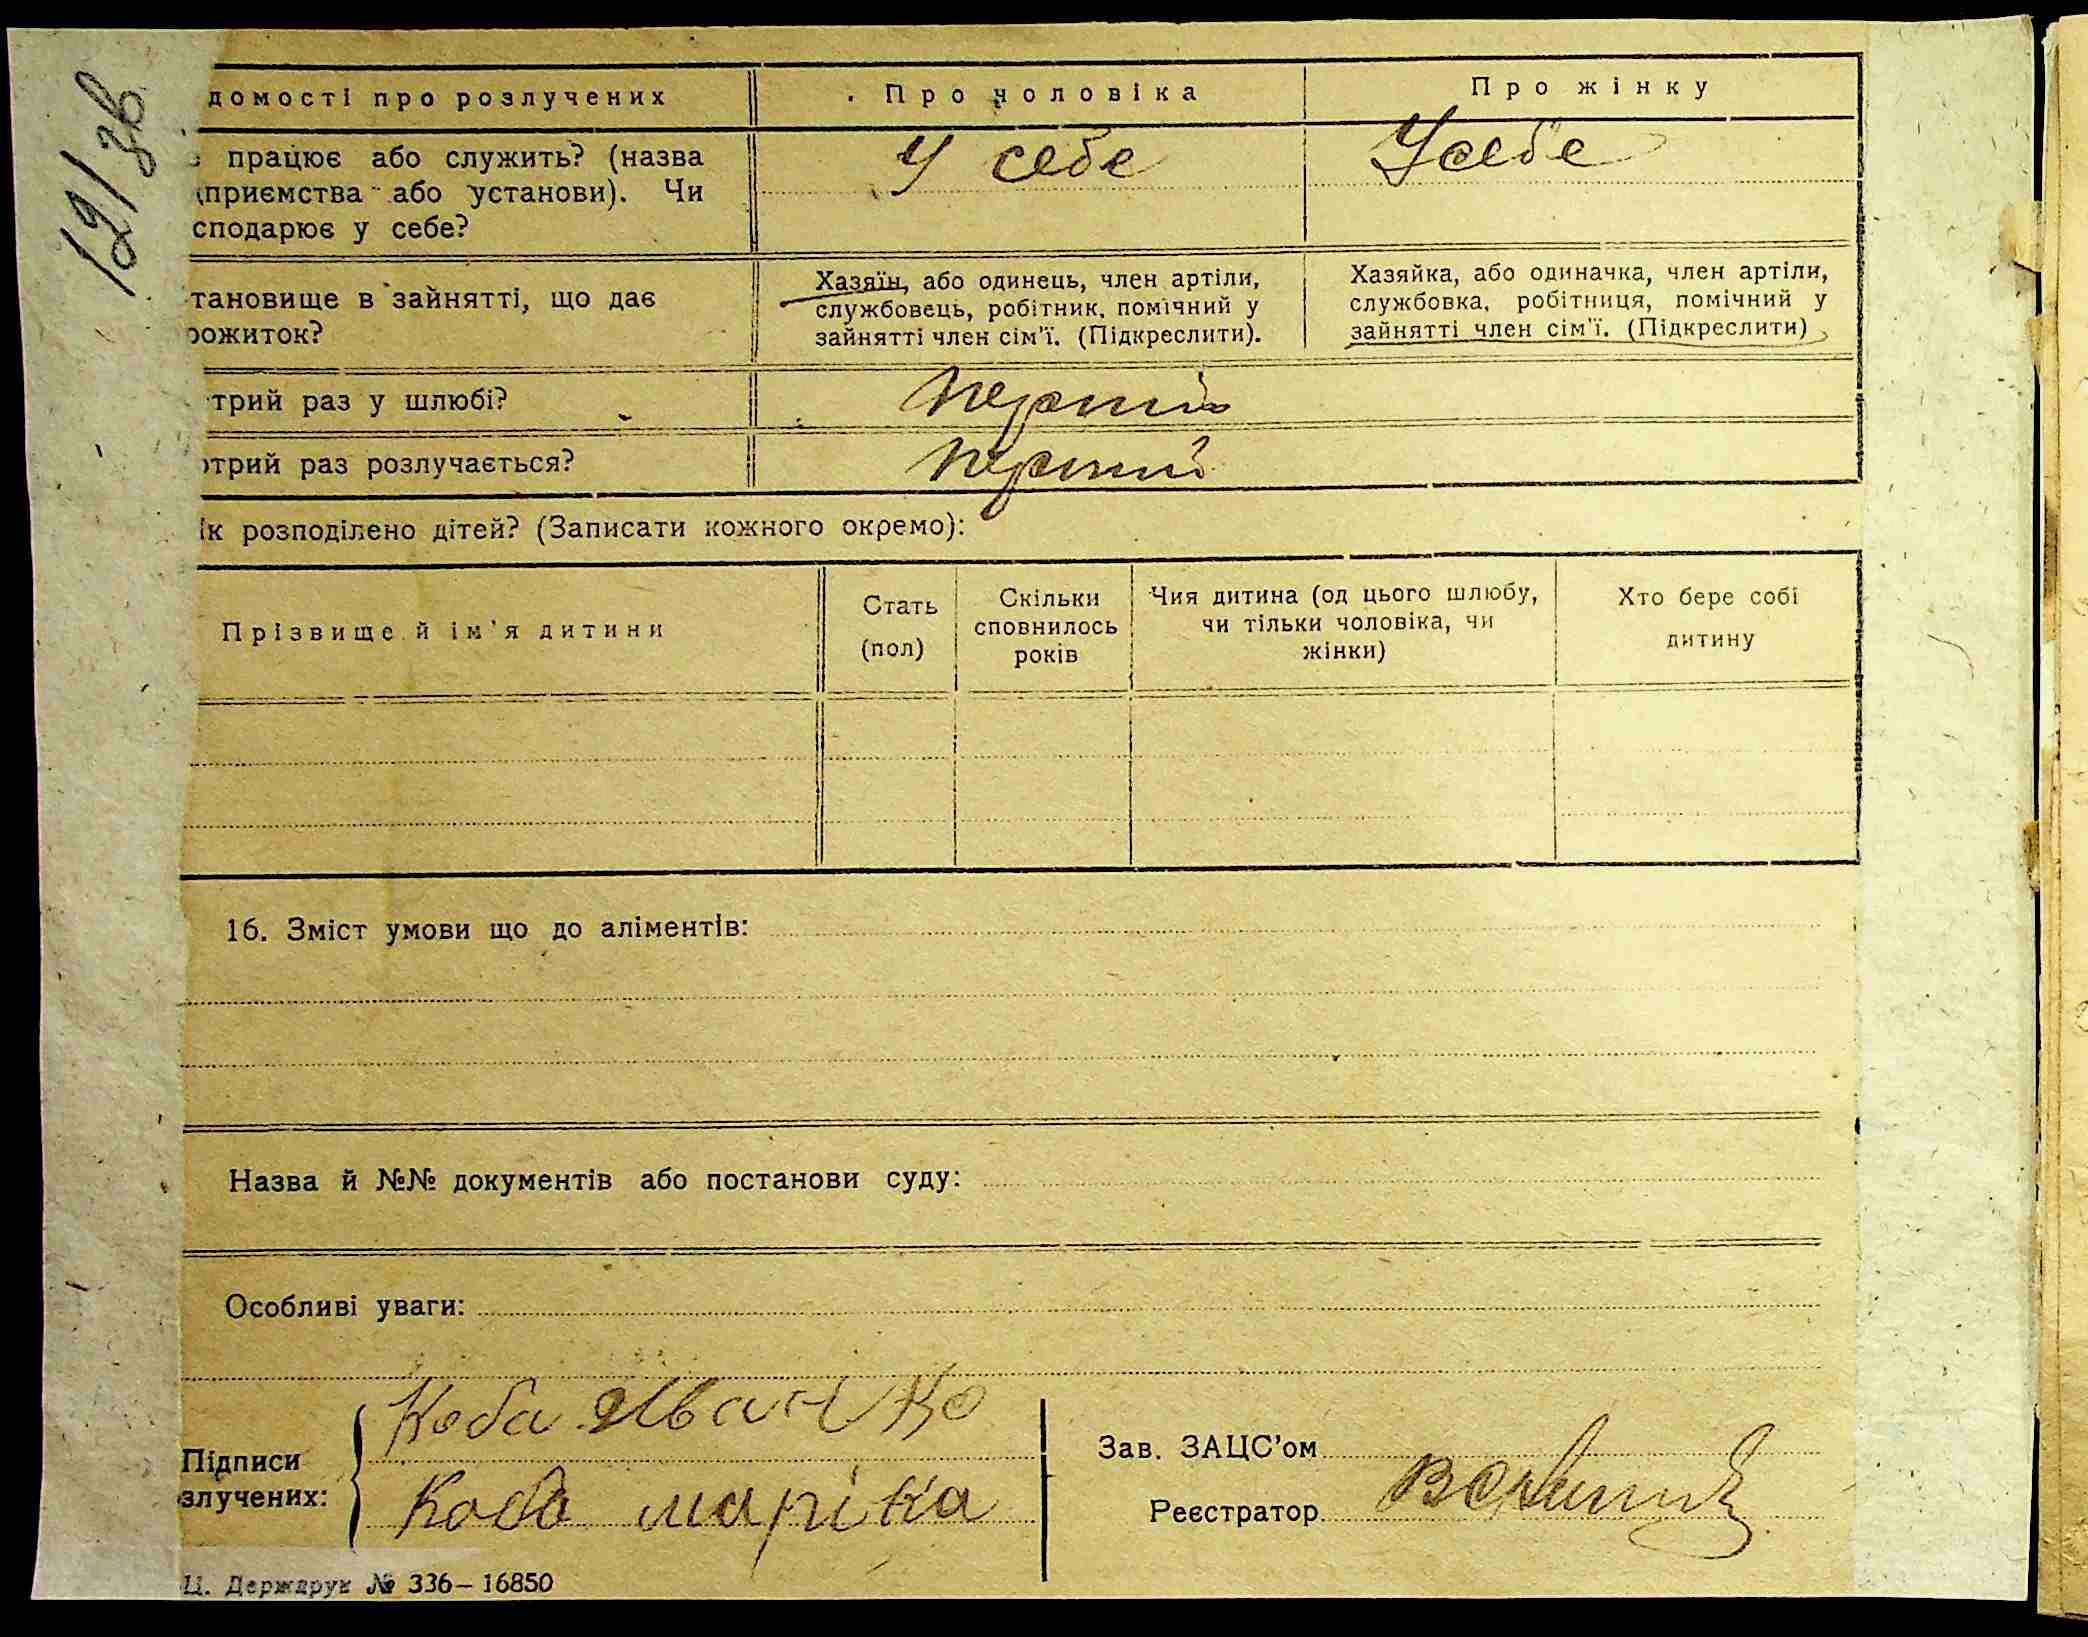 121 зв
домості про розлучених
Про чоловіка
Про жінку
працює або служить? (назва
приємства або установи). Чи
сподарює у себе?
У себе
У себе
тановище в зайнятті, що дає
рожиток?
Хазяїн, або одинець, член артіли,
службовець, робітник, помічний у
зайнятті член сім'ї. (Підкреслити).
Хазяйка, або одиначка, член артіли,
службовка, робітниця, помічний у
зайнятті член сім'ї. (Підкреслити)
трий раз у шлюбі?
перший
отрий раз розлучається?
перший
Як розподілено дітей? (Записати кожного окремо):
Прізвище й ім'я дитини
Стать
(пол)
Скільки
сповнилось
років
Чия дитина (од цього шлюбу,
чи тільки чоловіка, чи
жінки)
Хто бере собі
дитину
16. Зміст умови що до аліментів:
Назва й №№ документів або постанови суду:
Особливі уваги:
Підписи
злучених:
Коба Іванко
Коба маріка
Зав. ЗАЦС'ом
Реєстратор
Ц. Держдрук № 336–16850